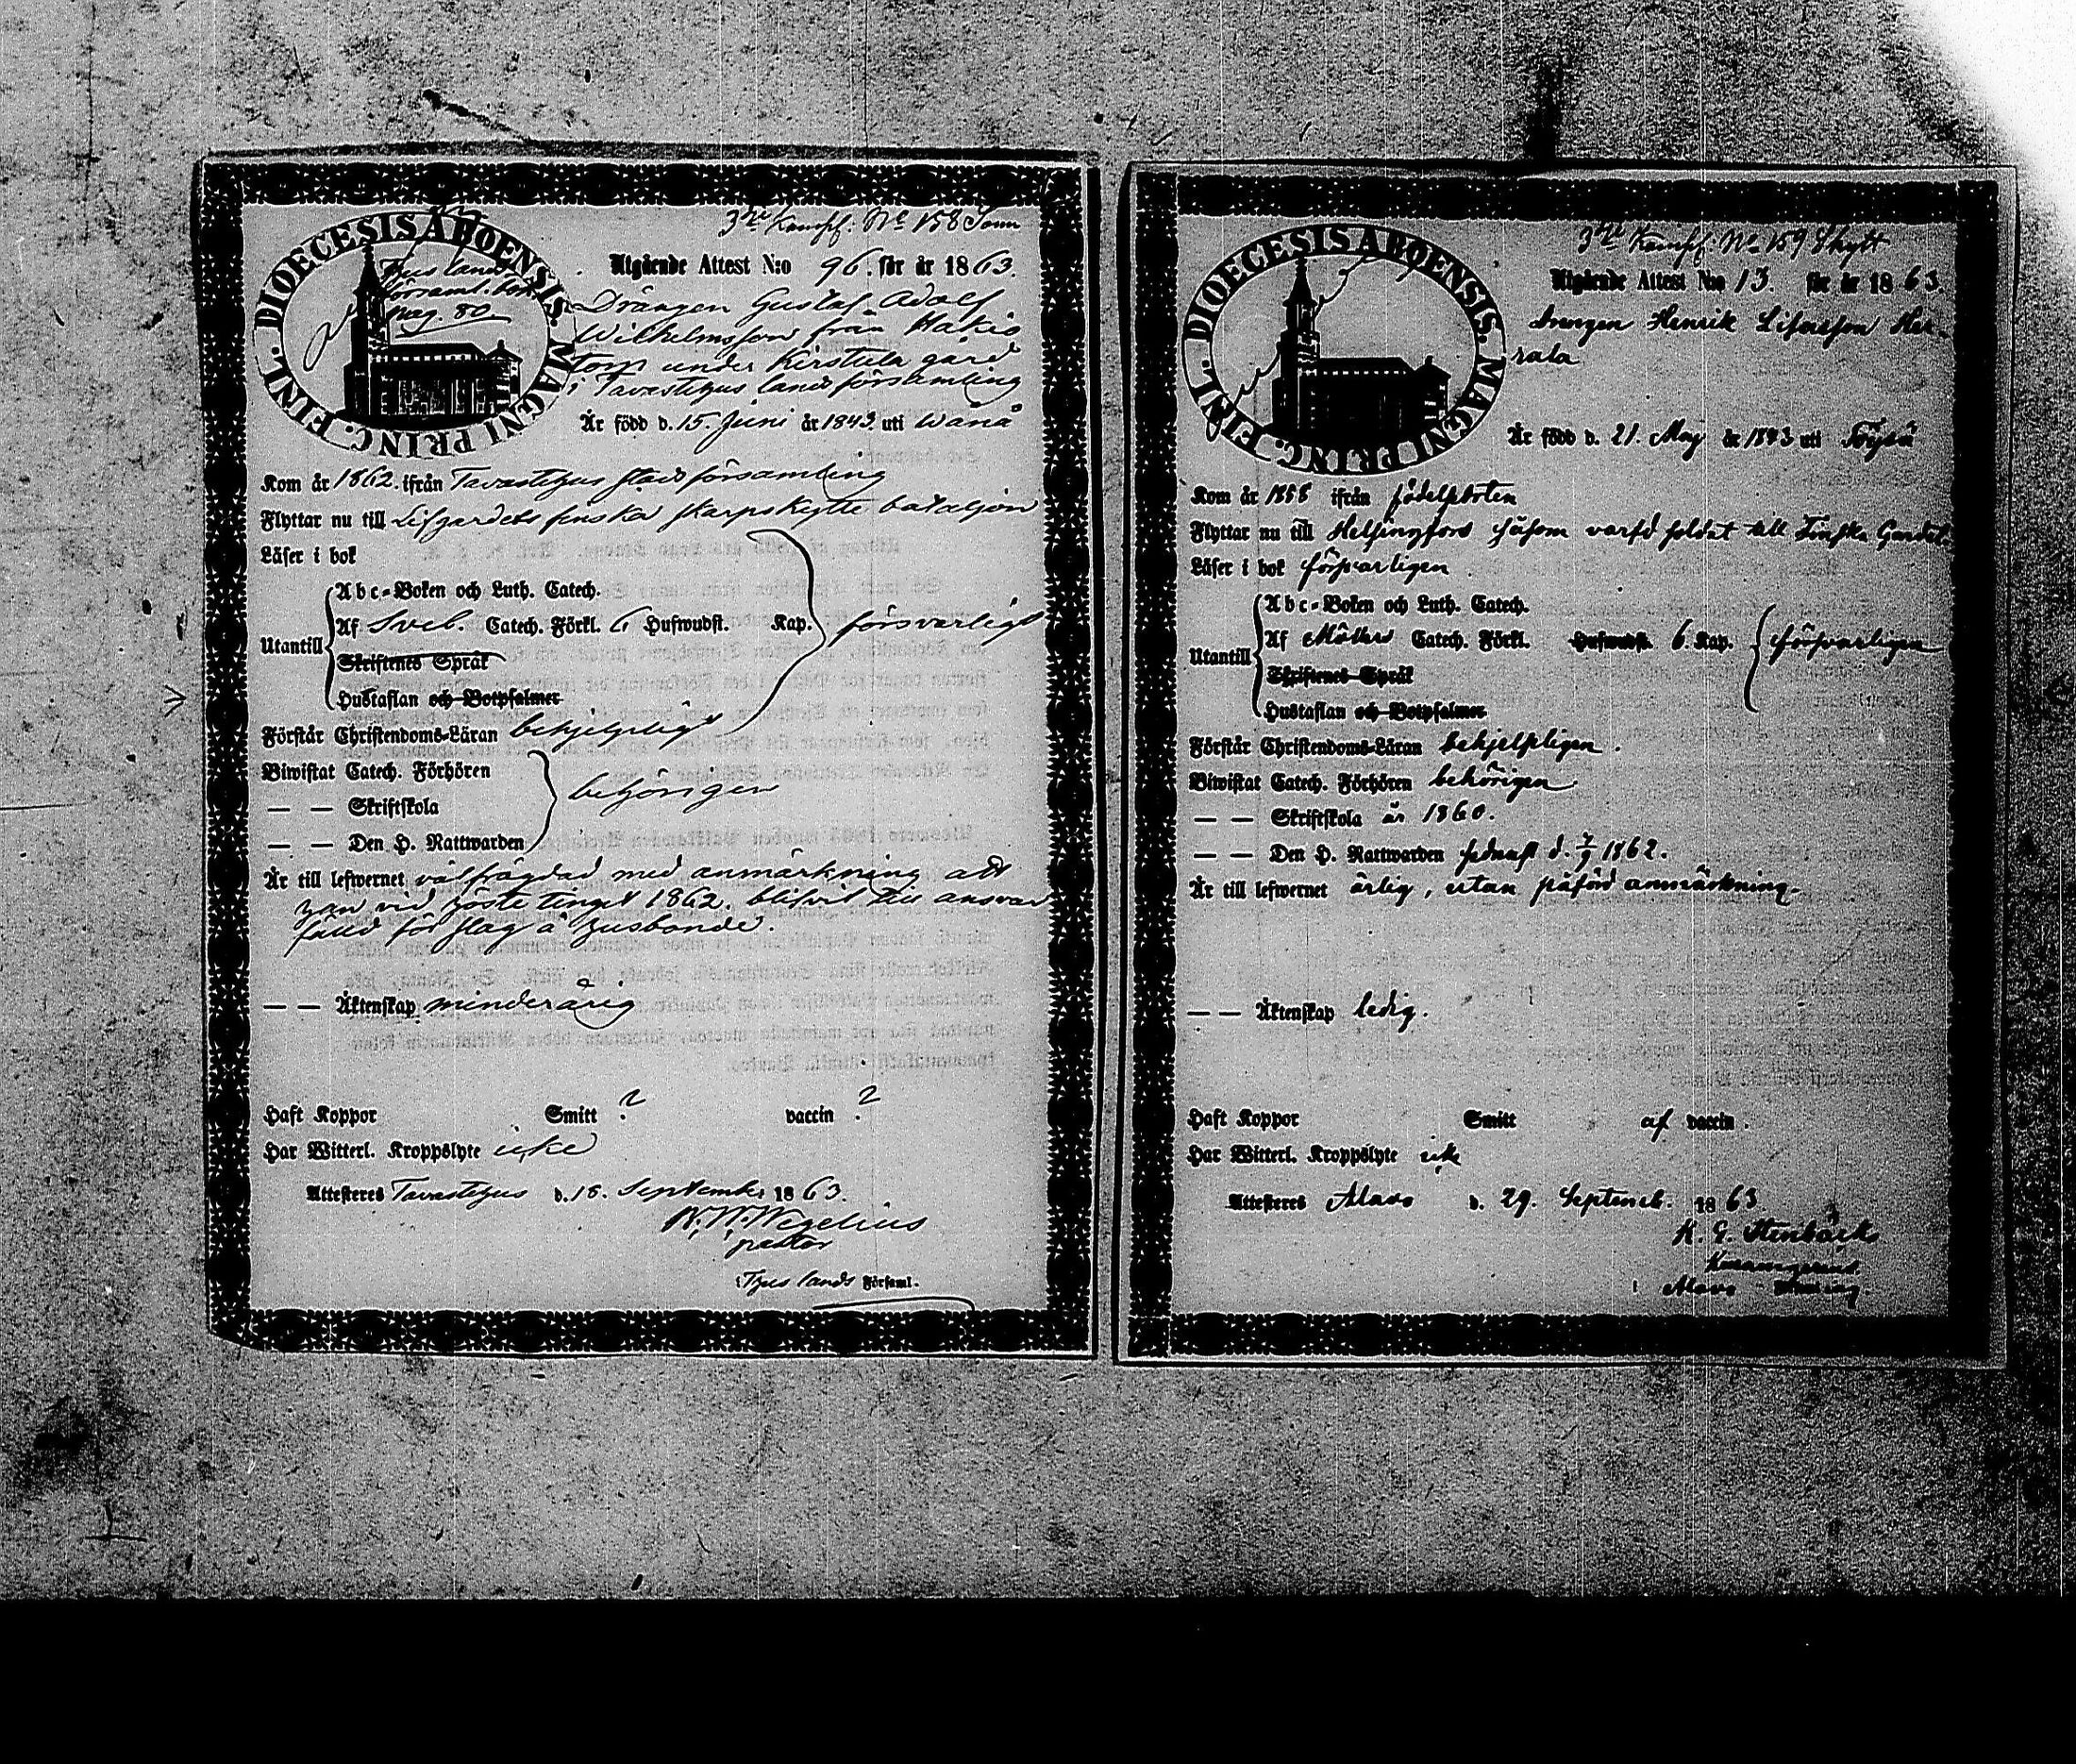 DIOECESIS ABOENSIS. MAGNI PRINC. FINL.
Thus lands
församl. bok
pag. 80
3dje Komp: No 158 Tonn
Utgående Attest N:o 96. för år 1863.
Drängen Gustaf Adolf
Wilhelmsson från Hakis
torp under Kirstula gård
i Tavastehus landsförsamling
Är född d. 15. Juni år 1843. uti Wånå
Kom år 1862. ifrån Tavastehus stadsförsamling
Flyttar nu till Lifgardets finska skarpskytte bataljon
Läser i bok
Abc-Boken och Luth. Catech.
Utantill Af Sveb. Catech. Förkl. 6 Hufwudst. Kap. försvarligt
Skriftenes Språk
Hustaflan och Botpsalmer
Förstår Christendoms-Läran behjelpligt
Biwistat Catech. Förhören
— — Skriftskola behörigen
— — Den H. Nattwarden
Är till lefwernet välfrägdad med anmärkning att
han vid höstetinget 1862. blifvit till ansvar
fälld för slag å husbonde.
— — Äktenskap minderårig
Haft Koppor Smitt ? vaccin ?
Har Witterl. Kroppslyte icke
Attesteras Tavastehus d. 18. September 1863.
W. Wegelius
pastor
i Thus lands Församl.
DIOECESIS ABOENSIS. MAGNI PRINC. FINL.
3dje Komp: No 159 Skytt
Utgående Attest N:o 13. för år 1863.
Drengen Henrik Lisasson Her-
rala
Är född d. 21. May år 1843 uti Töysä
Kom år 1858 ifrån födelseorten
Flyttar nu till Helsingfors såsom varfd soldat till Finska Gardet.
Läser i bok försvarligen
Abc-Boken och Luth. Catech.
Utantill Af Möllers Catech. Förkl. Hufwudst. 6. Kap. försvarligen
Skriftenes Språk
Hustaflan och Botpsalmer
Förstår Christendoms-Läran behjelpligen.
Biwistat Catech. Förhören behörigen
— — Skriftskola år 1860.
— — Den H. Nattwarden sednast d. 7/9 1862.
Är till lefwernet ärlig, utan påförd anmärkning.
— — Äktenskap ledig.
Haft Koppor Smitt af vaccin.
Har Witterl. Kroppslyte icke
Attesteras Alavo d. 29. Septemb. 1863
K. G. Stenbäck
i Alavo